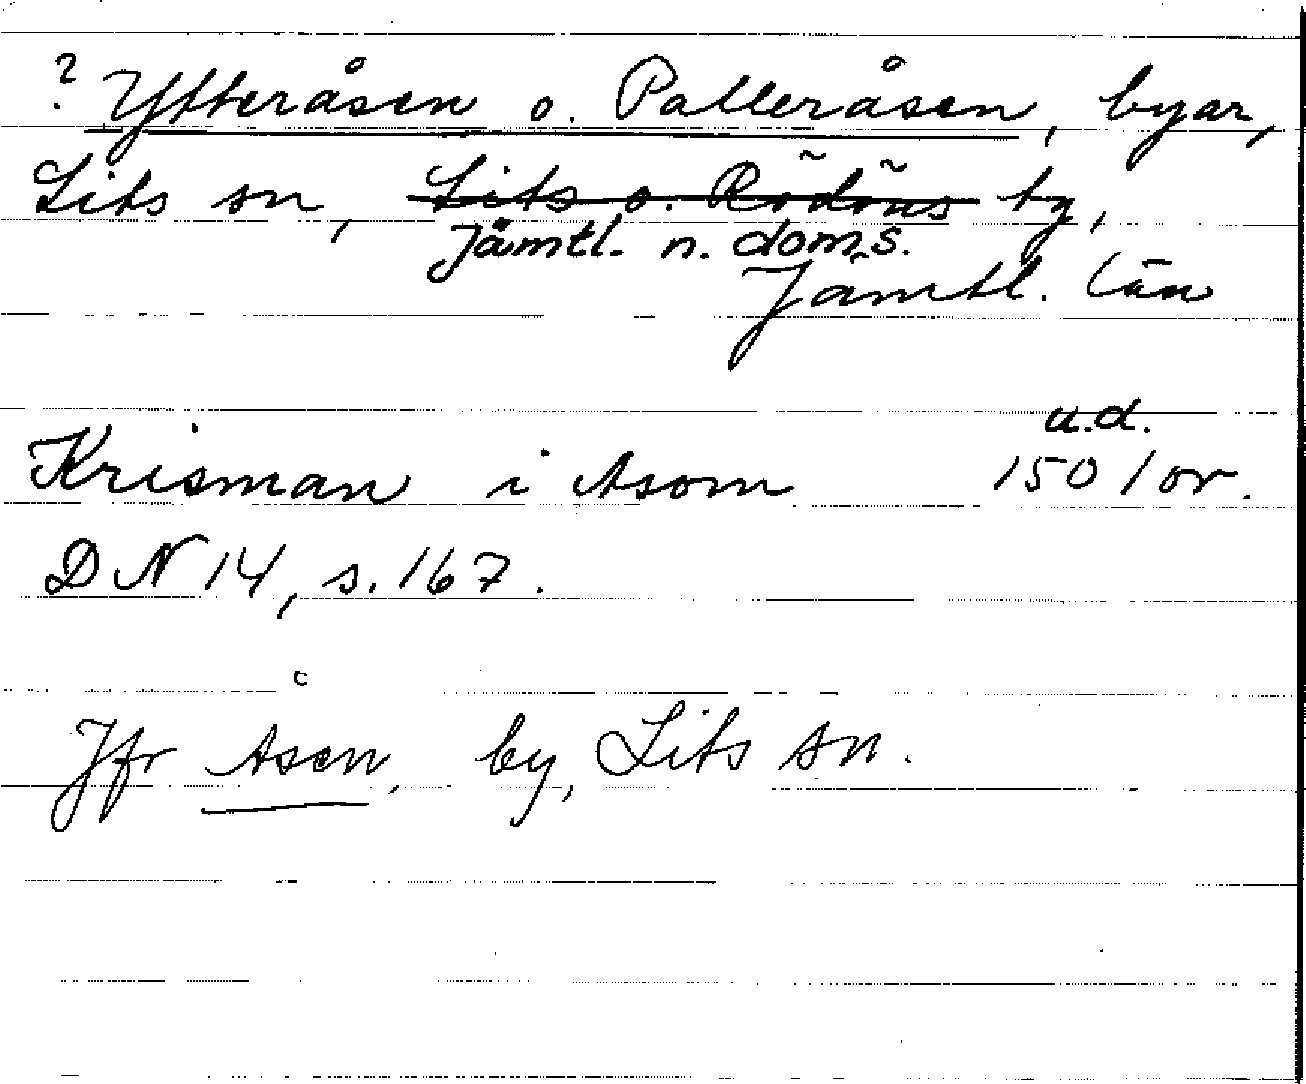 ? Ytteråsen o. Palleråsen, byar,
Lits sn, Lits o. Rödöns tg,
Jämtl. n. doms.
Jämtl. län
u.d.
Krisman i Asom 150 / or.
DN 14, s. 167.
Jfr Åsen, by, Lits sn.